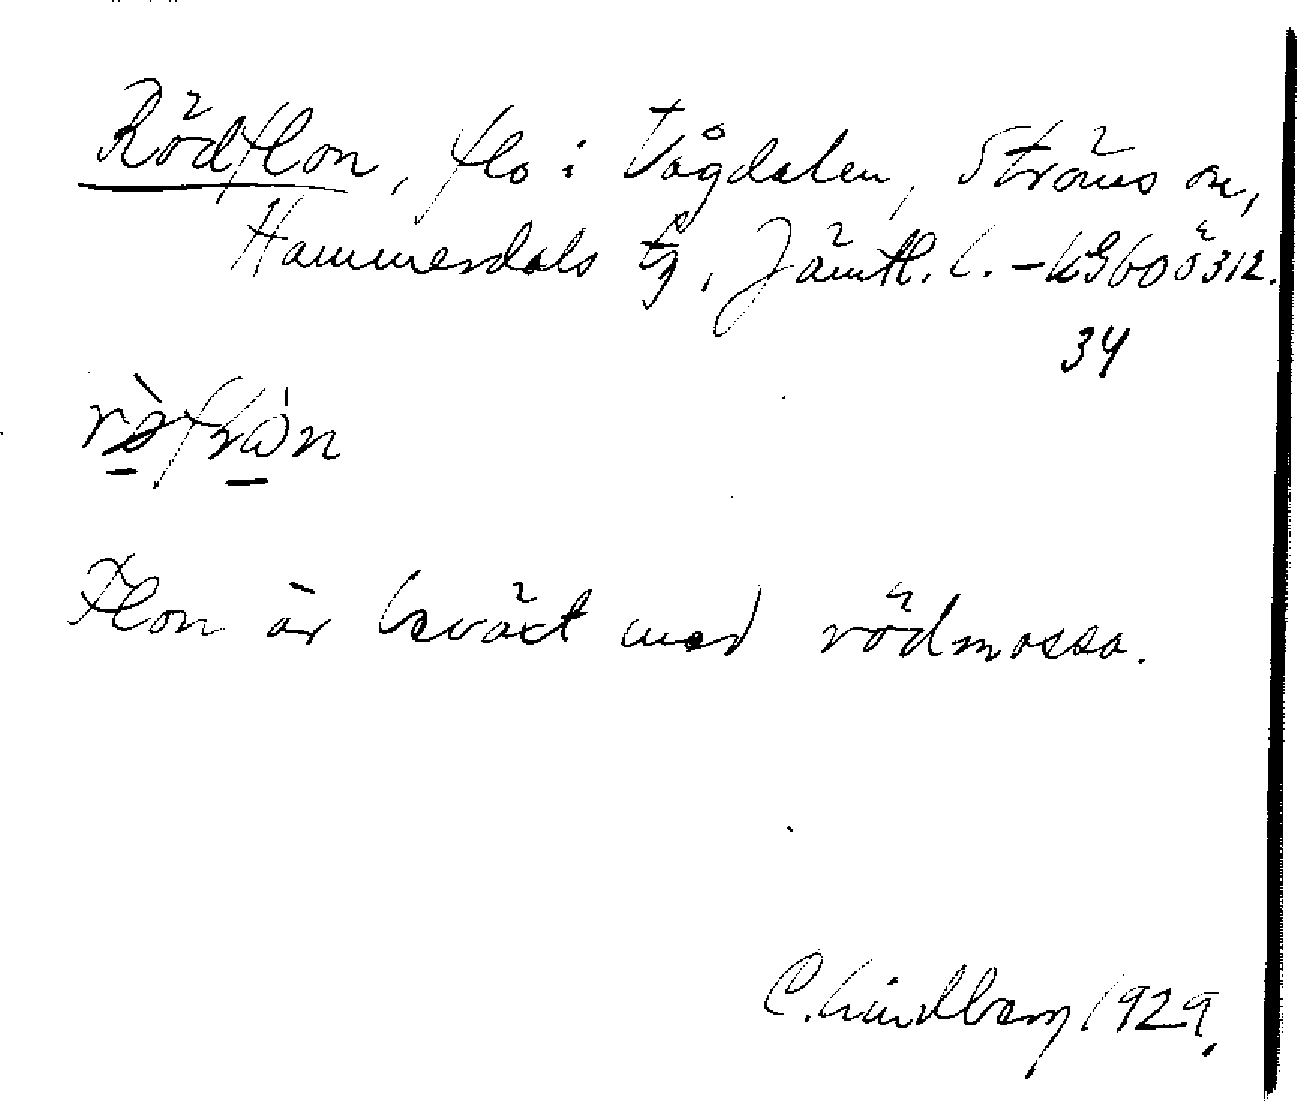 Rödflon, flo i Vågdalen, Ströms sn,
Hammerdals tg, Jämtl. l. – kg600ö312.
34
Flon är beväxt med rödmossa.
C. Lindberg 1929.